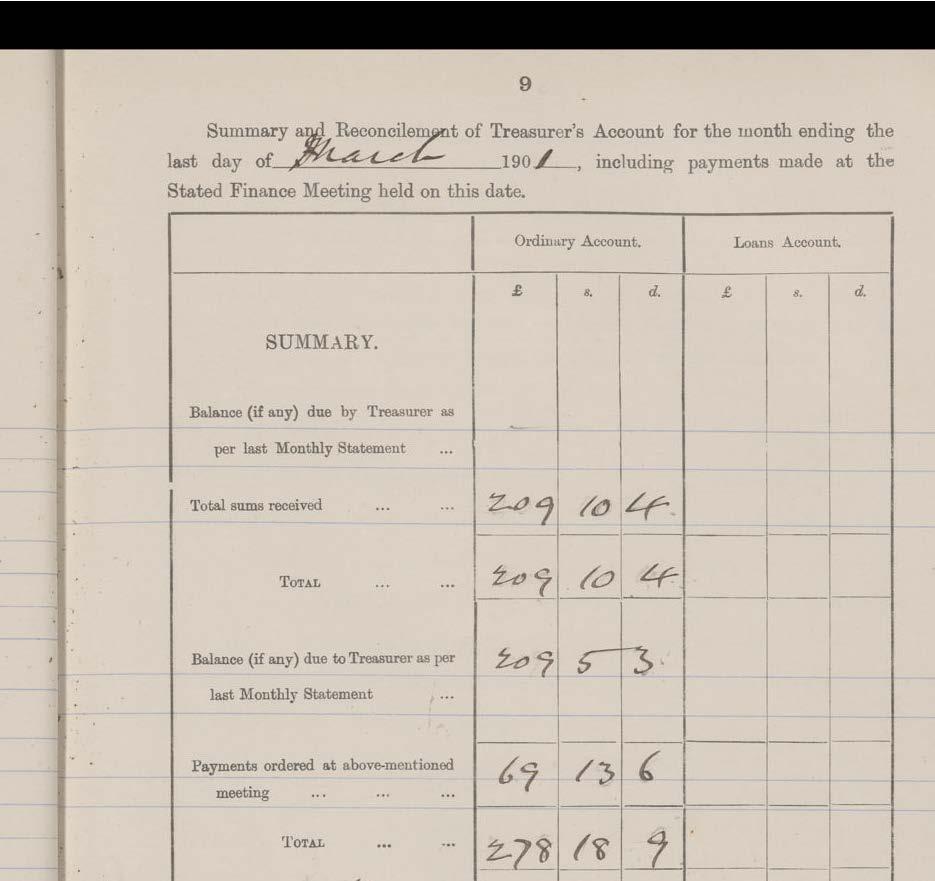 9
Summary and Reconcilement of Treasurer's Account for the month ending the
last day of March 1901, including payments made at the
Stated Finance Meeting held on this date.
Ordinary Account. Loans Account.
£ s. d. £ s. d.
SUMMARY.
Balance (if any) due by Treasurer as
per last Monthly Statement ...
Total sums received ... ... 209 10 4
TOTAL ... ... 209 10 4
Balance (if any) due to Treasurer as per 209 5 3
last Monthly Statement ...
Payments ordered at above-mentioned 69 13 6
meeting ... ... ...
TOTAL ... ... 278 18 9